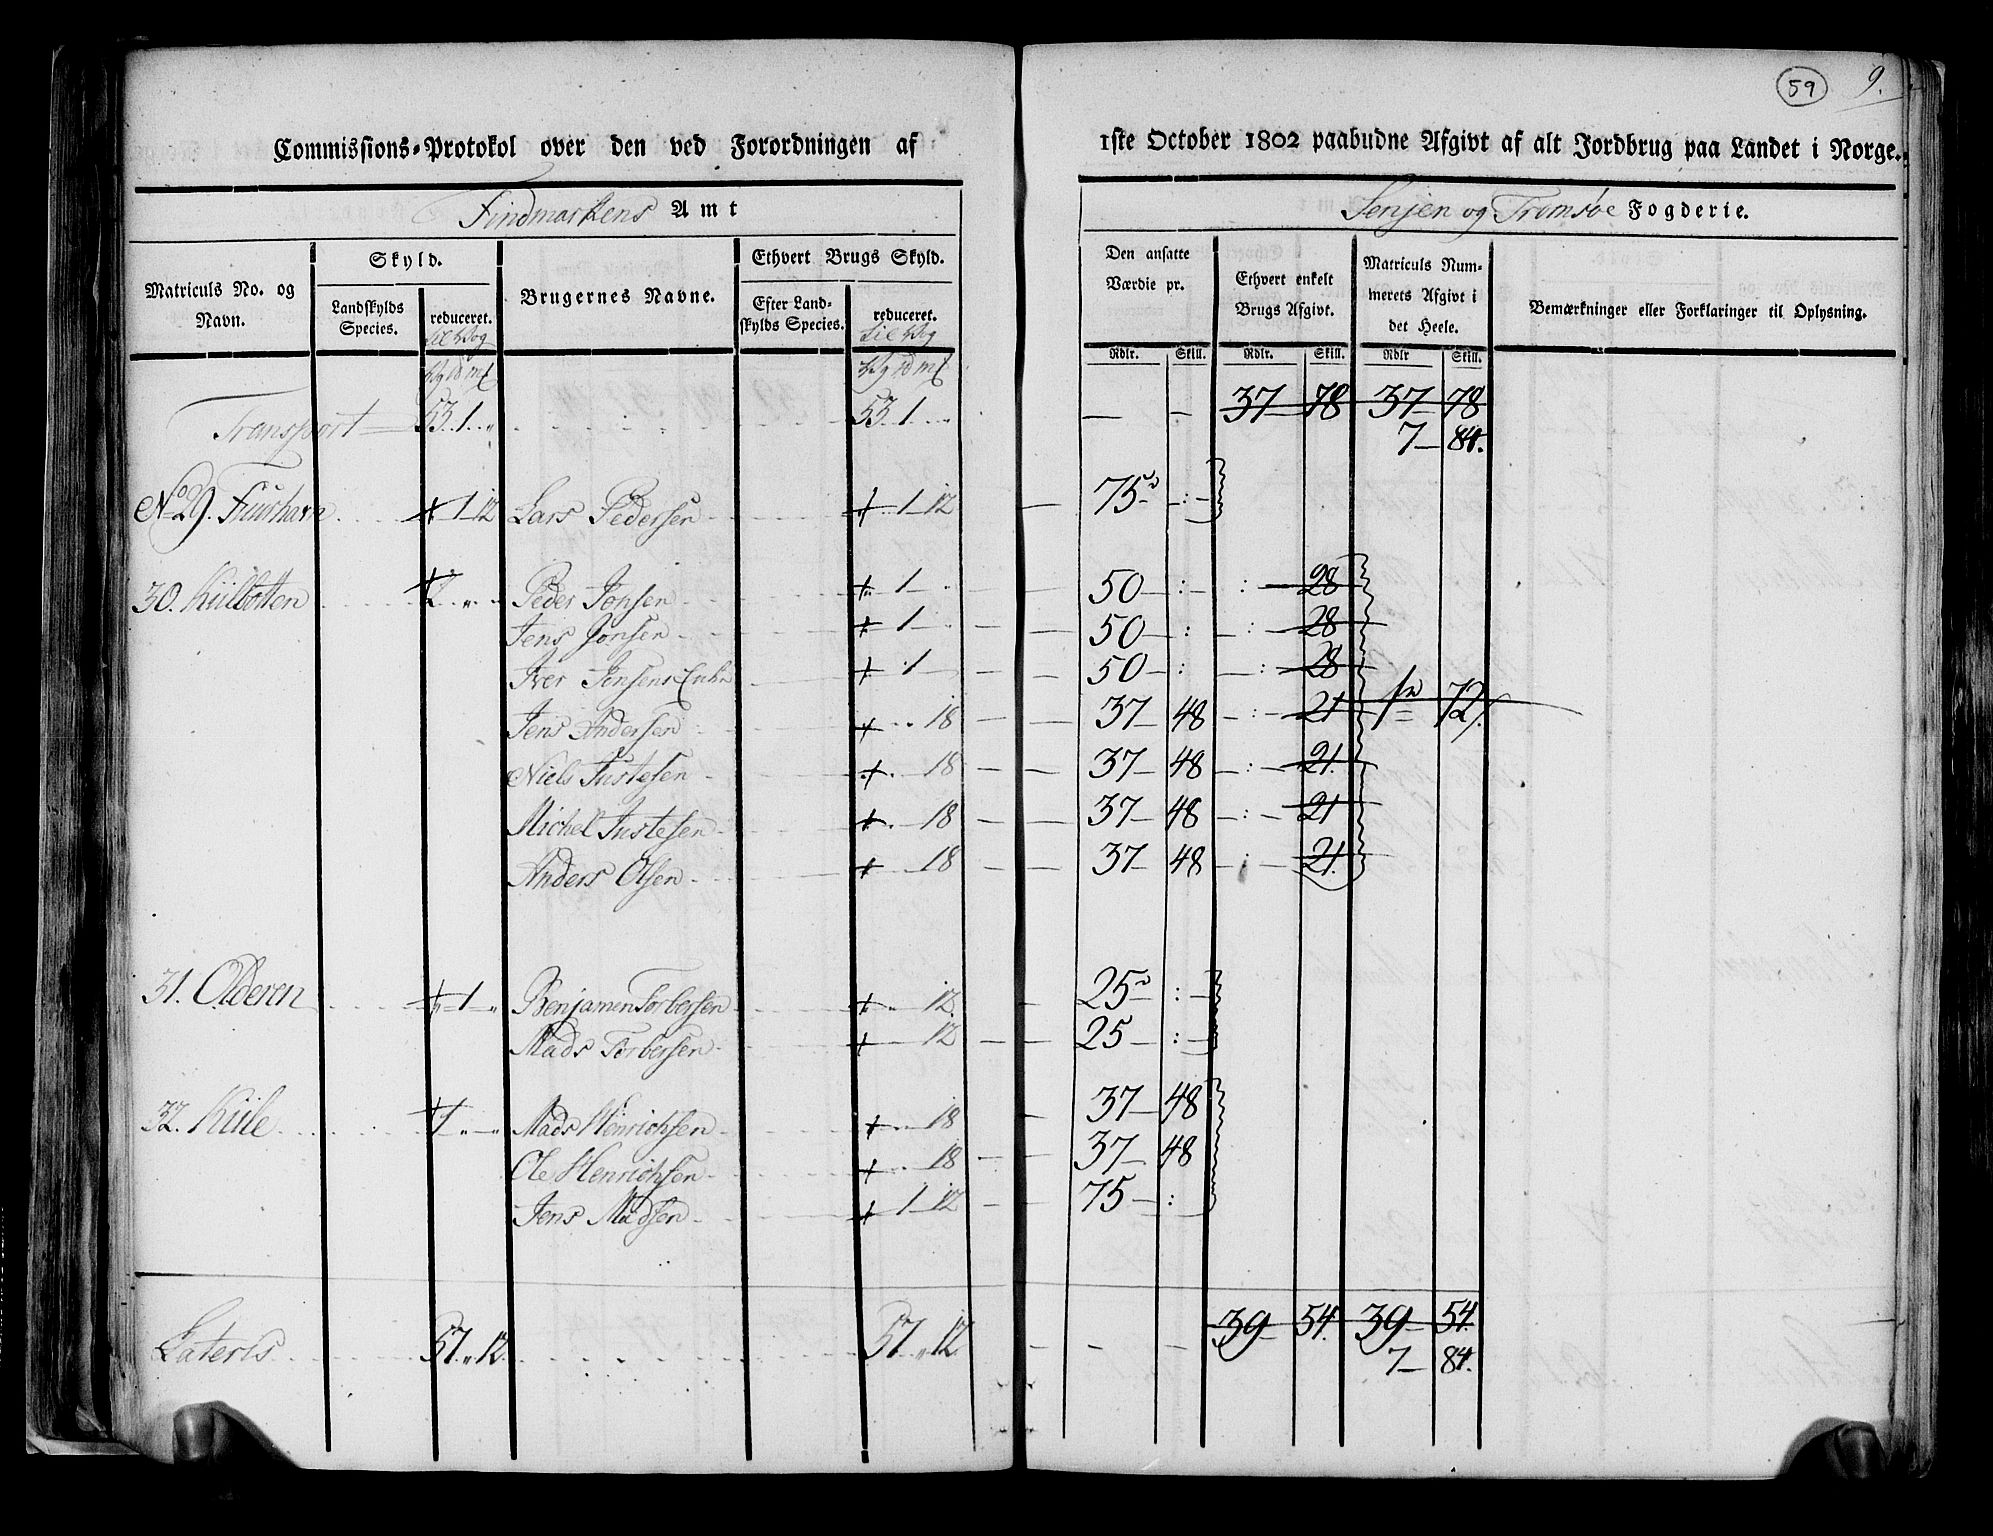 59 9.
Commissions-Protokol over den ved Forordningen af 1ste October 1802 paabudne Afgivt af alt Jordbrug paa Landet i Norge.
Findmarkens Amt Senjen og Tromsøe Fogderie.
Matriculs No. og Navn.
Skyld.
Landskylds Species.
reduceret.
til Vog
Brugernes Navne.
Ethvert Brugs Skyld.
Efter Landskylds Species.
reduceret.
til Vog
Den ansatte Værdie pr.
Ethvert enkelt Brugs Afgivt.
Matriculs Nummerets Afgivt i det Heele.
Bemærkninger eller Forklaringer til Oplysning.
Rdlr. Skill. Rdlr. Skill. Rdlr Skill.
Vg ℔ mk Vg ℔ mk
Transport 53. 1 „ 53. 1 — — 37 78 37 78
7 84.
No 29. Fuushavn „ 1 12 Lars Pedersen „ 1 12 75 :
30. Kiilbotten 2 „ „ Peder Jonsen „ 1 50 : : 28
Jens Jonsen „ 1 50 : : 28
Iver Jensens Enke „ 1 50 : : 28
Jens Andersen „ „ 18 37 48 : 21 1 72.
Niels Justesen „ „ 18 37 48 : 21.
Michel Justesen „ „ 18 37 48 : 21
Anders Olsen „ „ 18 37 48 : 21.
31. Olderen „ 1 „ Benjamen Torbersen „ „ 12 25 :
Mads Torbersen „ „ 12 25 :
32. Kiile 1 „ „ Mads Henrichsen „ „ 18 37 48
Ole Henrichsen „ „ 18 37 48
Jens Madsen „ 1 12 75 :
Lateris 57. „ 12 57 „ 12 — — 39 54. 39 54.
7 84.